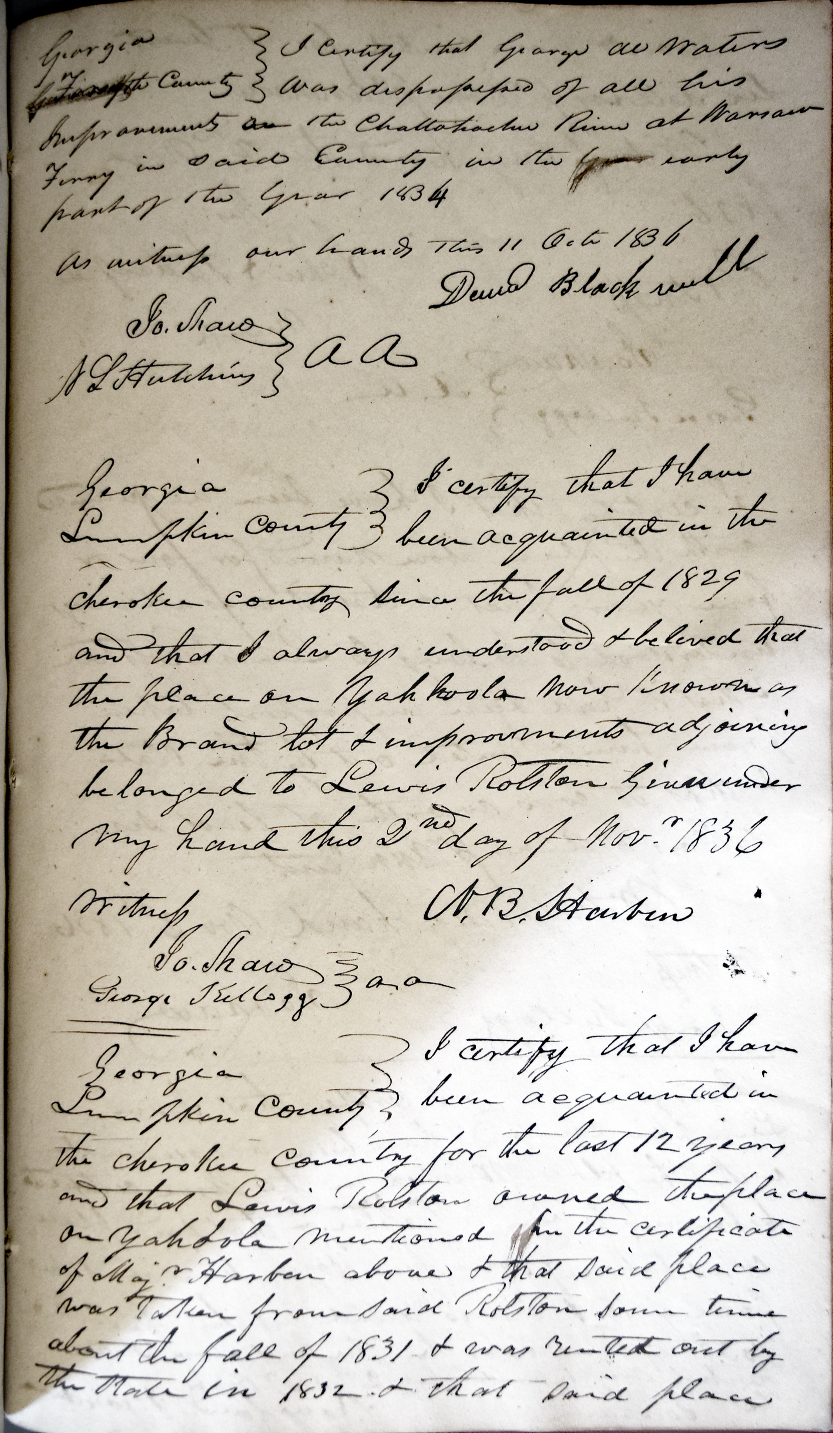 Georgia } I certify that George M Waters
Forsyth County } was dispossessed of all his
Improvements on the Chattahochee River at Warsaw
Ferry in said County in the early
part of the Year 1834
As witness our hands this 11 Octr 1836
David Blackwell
Jo. Shaw
N L Hutchins } A A
Georgia } I certify that I have
Lumpkin County } been acquainted in the
cherokee country since the fall of 1829
and that I always understood & belived that
the place on Yahkoola now known as
the Brand lot & improvments adjoining
belonged to Lewis Rolston Given under
my hand this 2nd day of Novr 1836
Witness N. B. Harben
Jo. Shaw
George Kellogg } a a
Georgia } I certify that I have
Lumpkin County } been acquainted in
the cherokee country for the last 12 years
and that Lewis Rolston owned the place
on Yahoola mentioned in the certificate
of Majr Harben above & that said place
was taken from said Rolston some time
about the fall of 1831 & was rented out by
the State in 1832 & that said place